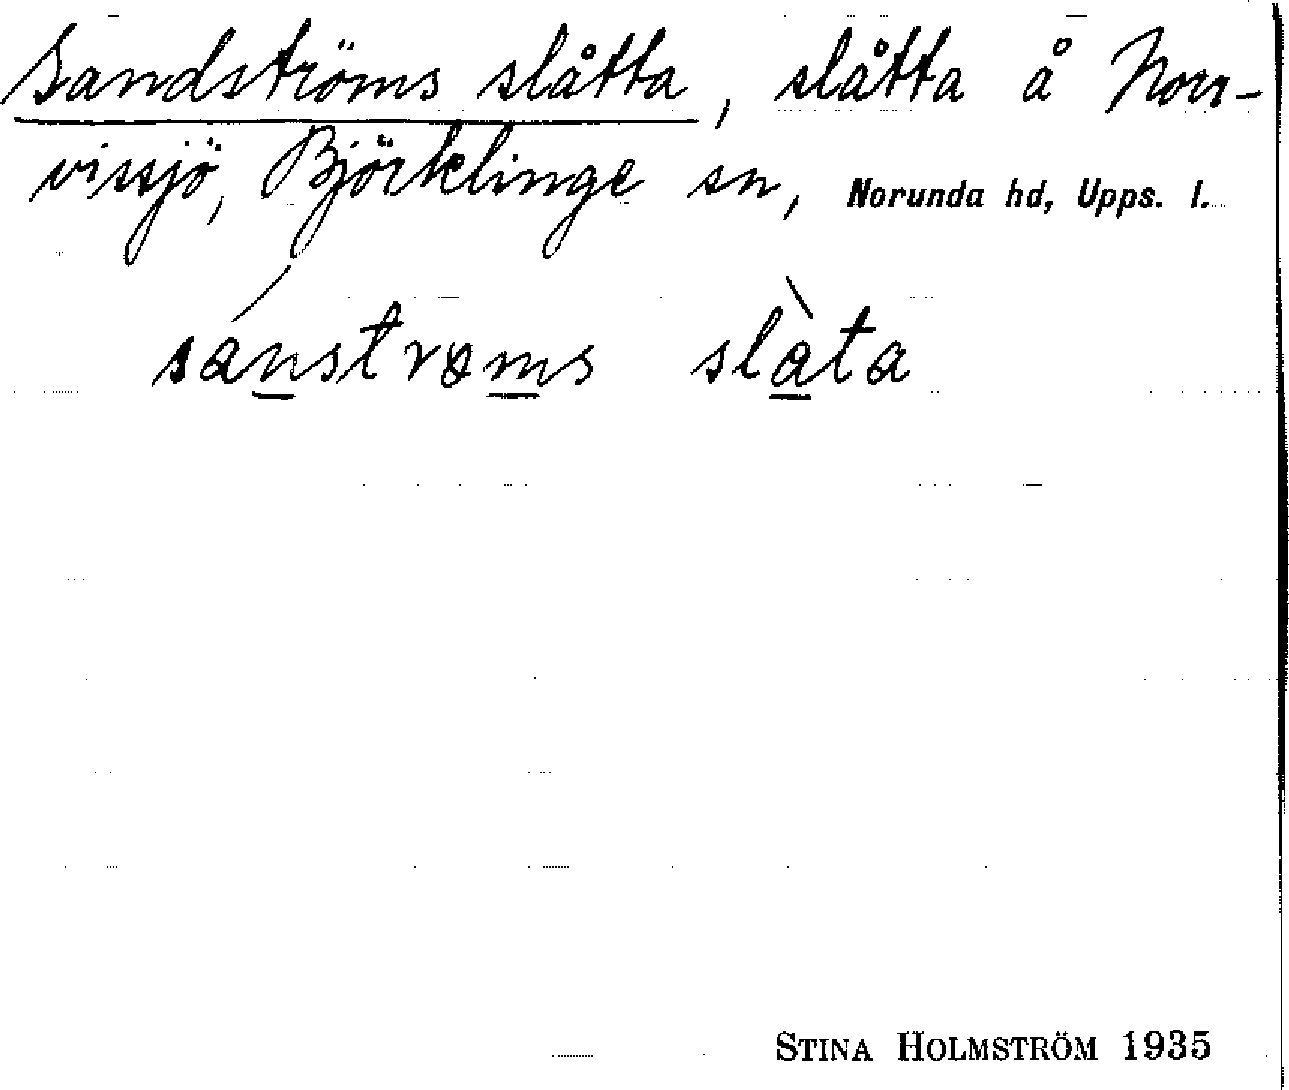 Sandströms slåtta, slåtta å Norr-
vissjö, Björklinge sn, Norunda hd, Upps. l.
sánstrøms slàta
STINA HOLMSTRÖM 1935